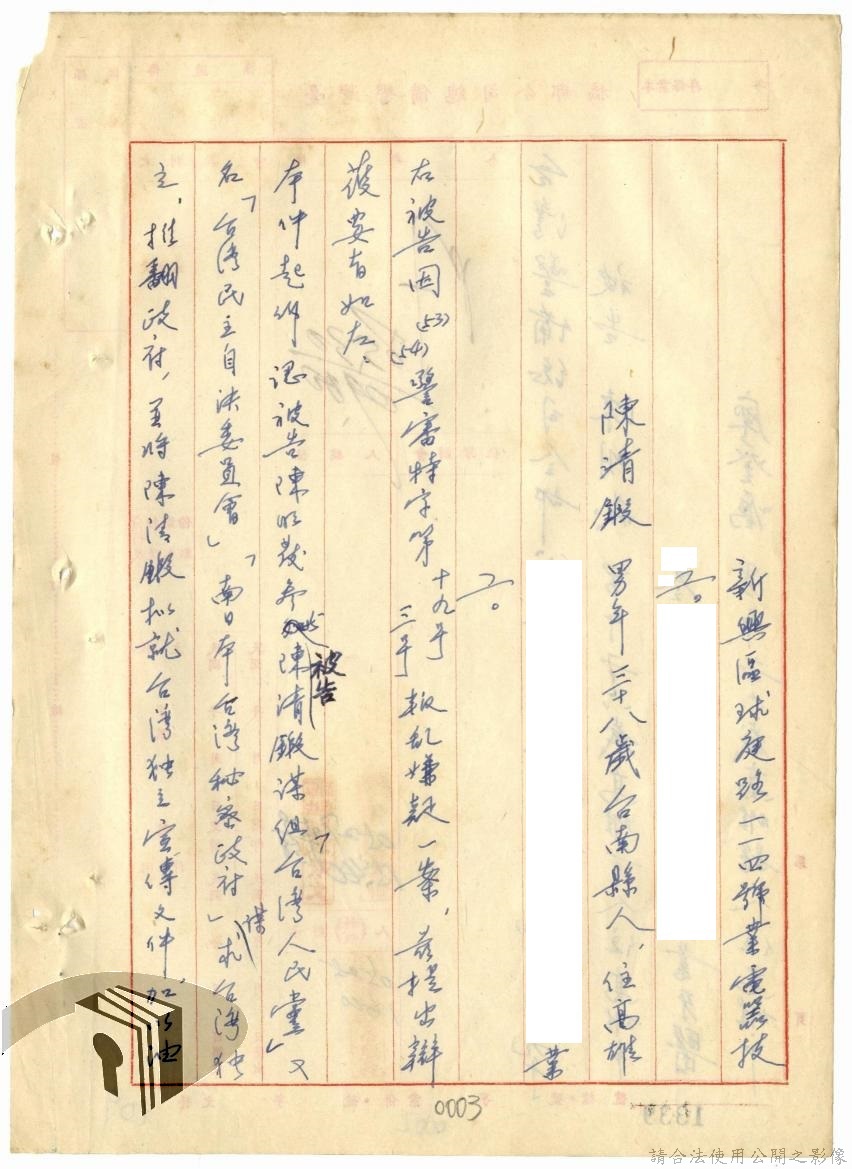 新興區球庭路一一四號業電器技
工。
陳清鍛 男年三十八歲台南縣人，住高雄
業
工。
右被告因(53)(54)警審特字第十九号三号叛乱嫌疑一案，茲提出辯
護要旨如左、
本件起訴謂被告陳 参 被告陳清鍛謀組「台灣人民黨」又
名「台湾民主自決委員會」「南日本台湾秘密政府」謀求台湾独
立，推翻政府，並將陳清鍛拟就台湾独立宣傳文件，加以油
0003
1339
請合法使用公開之影像